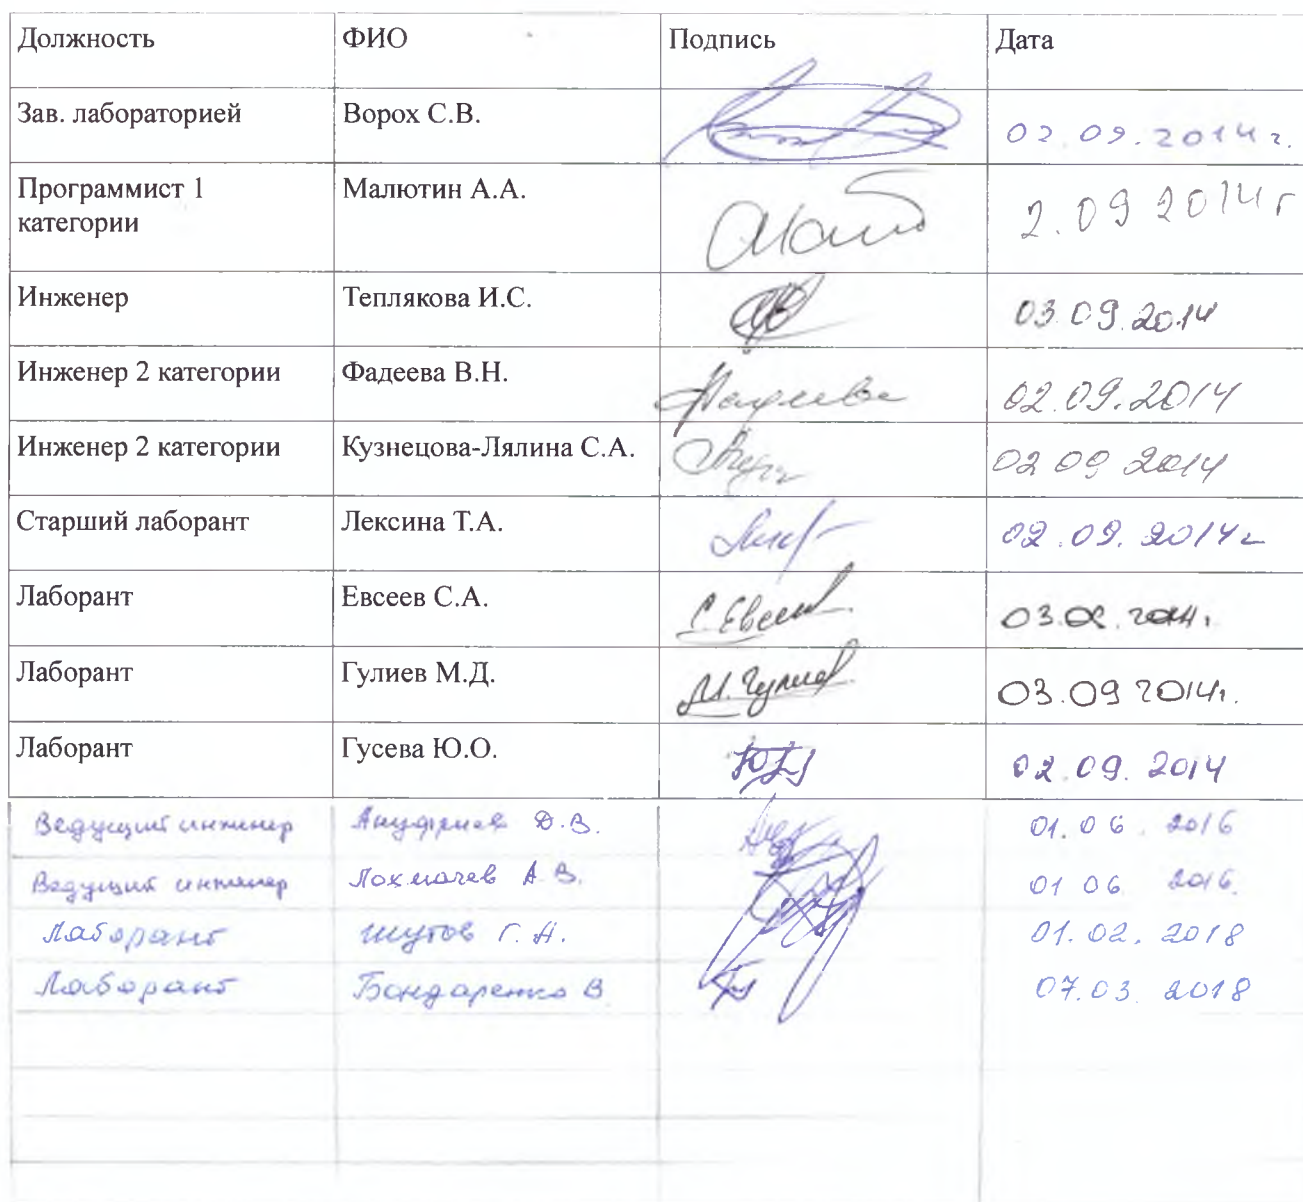 Должность ФИО Подпись Дата
Зав. лабораторией Ворох С.В. 02.09.2014 г.
Программист 1 Малютин А.А. 2.09 2014 г
категории
Инженер Теплякова И.С. 03.09.2014
Инженер 2 категории Фадеева В.Н. Фадеева 02.09.2014
Инженер 2 категории Кузнецова-Лялина С.А. 02 09 2014
Старший лаборант Лексина Т.А. 02.09.2014 г
Лаборант Евсеев С.А. С.Евсеев 2014г.
Лаборант Гулиев М.Д. М.Гулиев 03.09 2014г.
Лаборант Гусева Ю.О. 02.09.2014
Ведущий инженер Ануфриев Д.В. 01.06.2016
Ведущий инженер Лохмачев А.В. 01 06 2016.
Лаборант Шутов Г.А. 01.02.2018
Лаборант Бондаренко В 07.03.2018